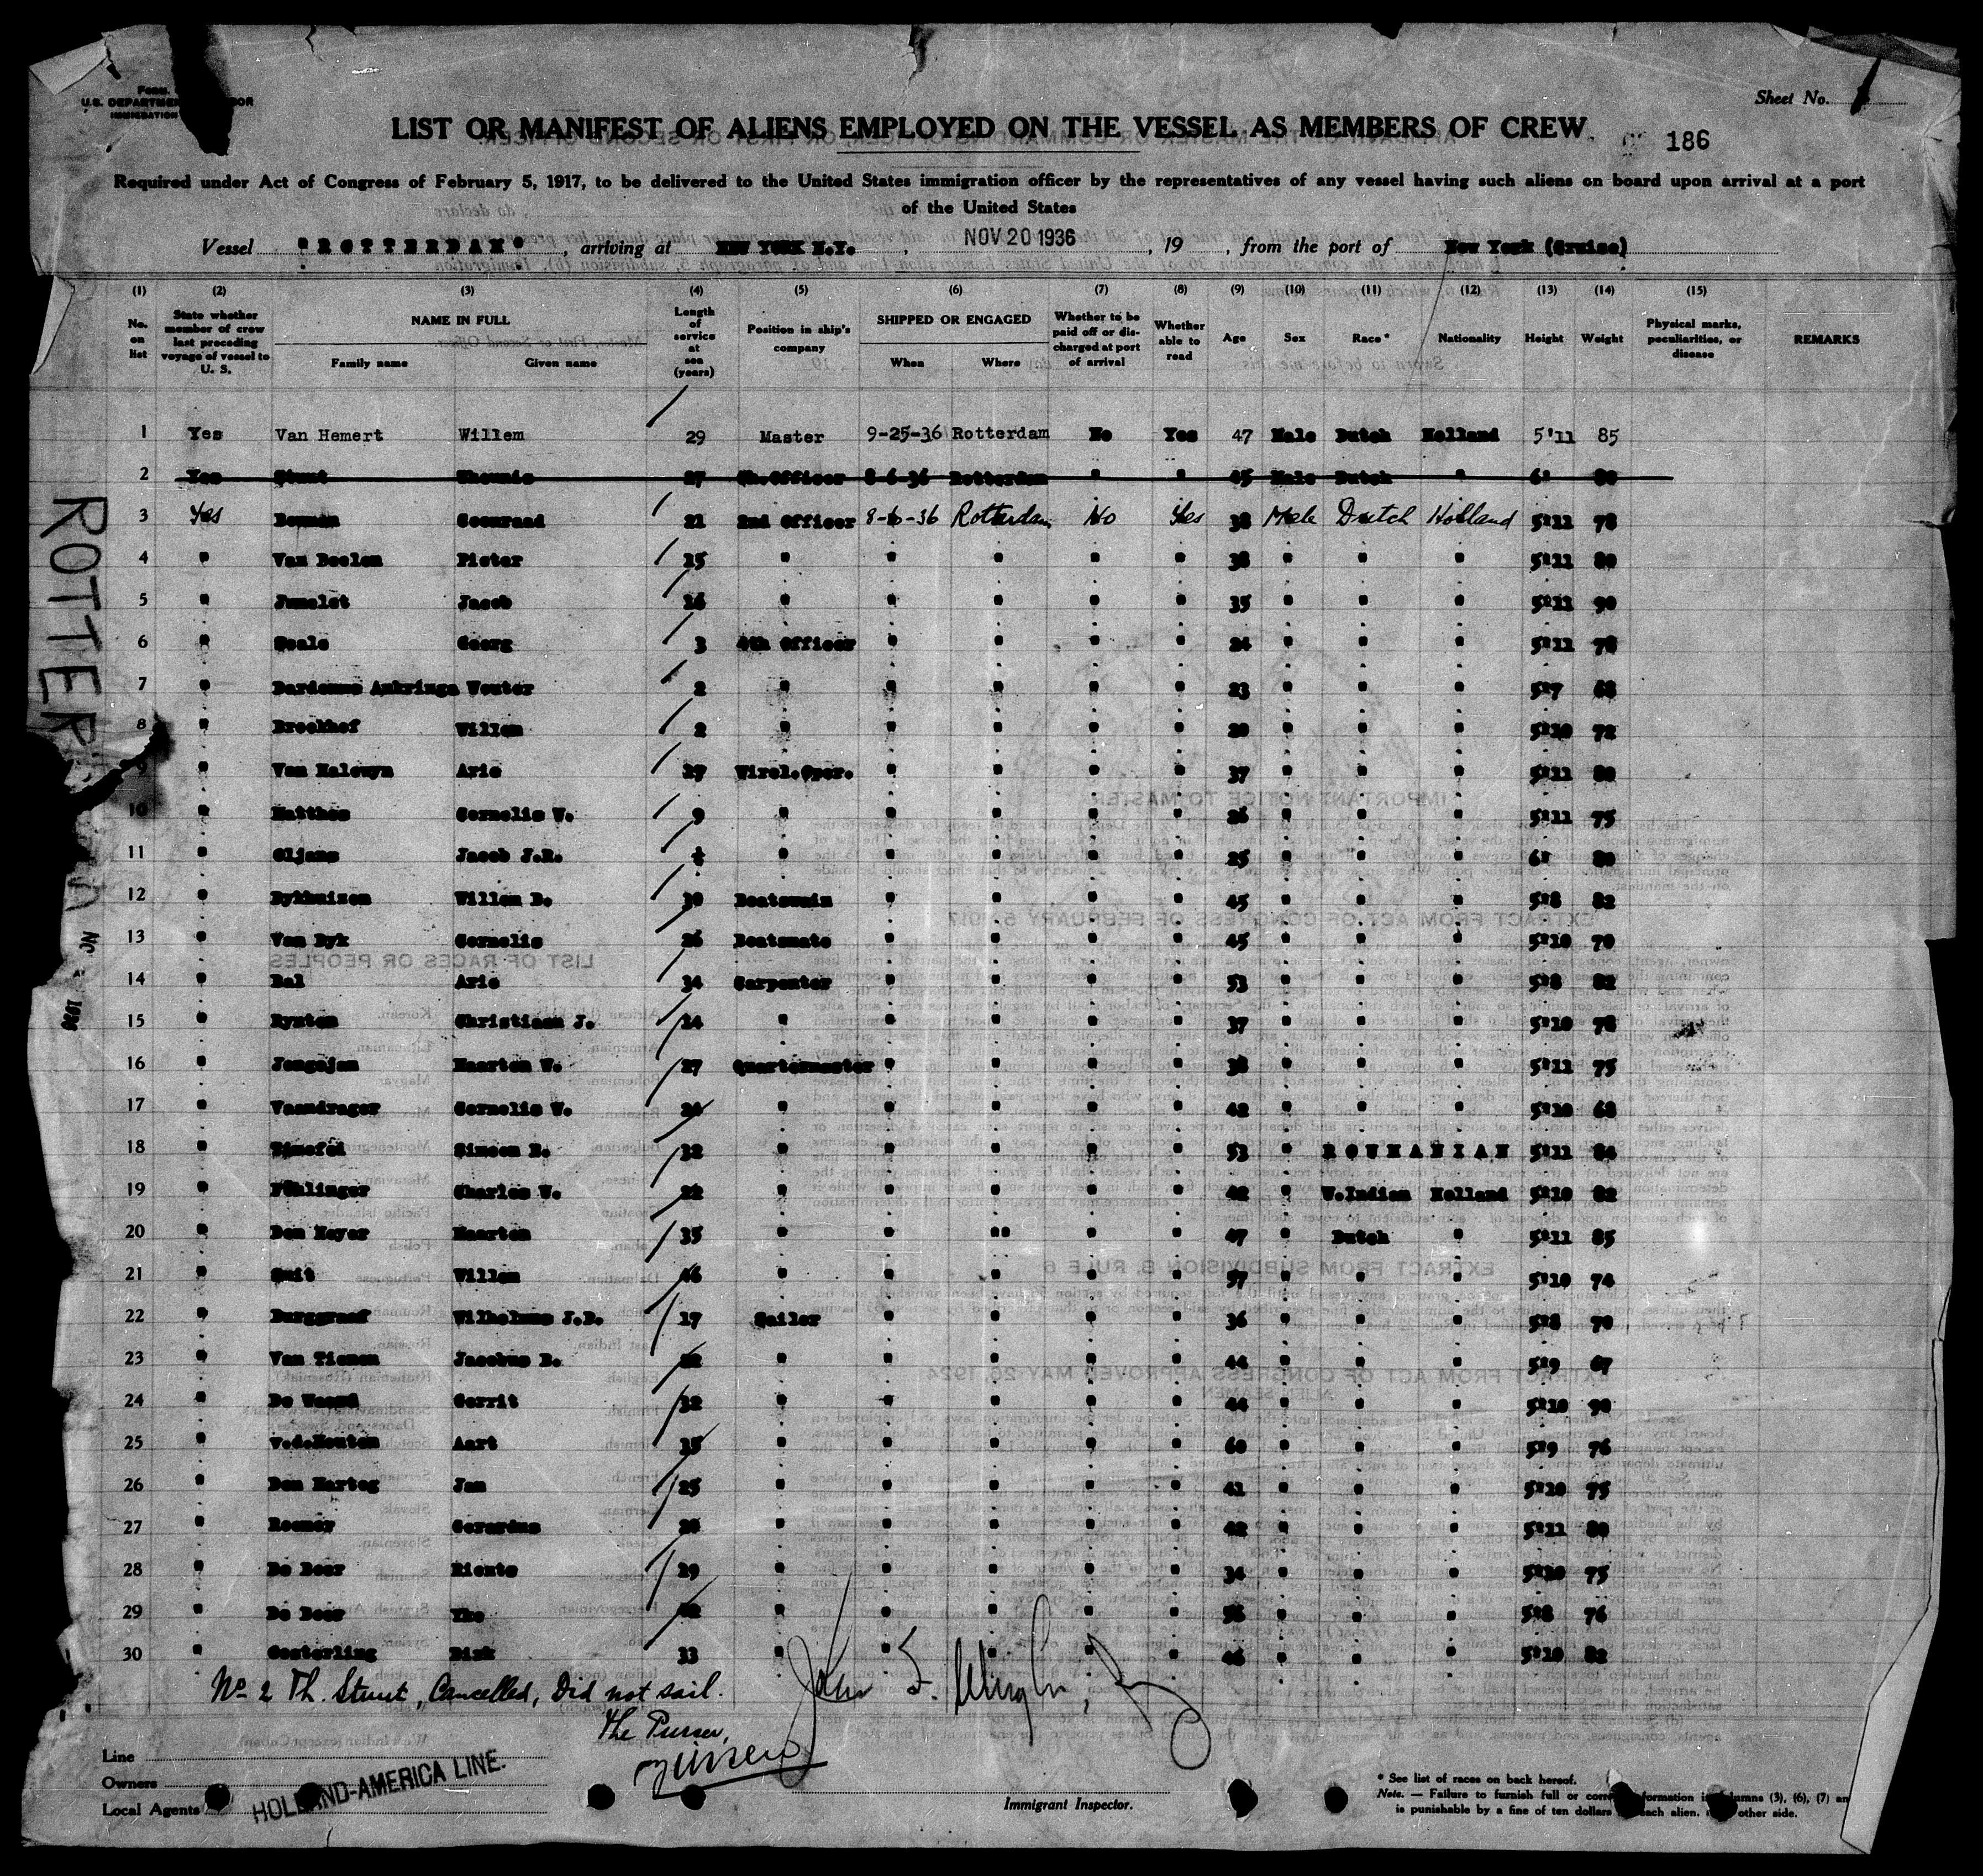 Form.
U.S. DEPARTME OR
IMMIGRATION
Sheet No.
LIST OR MANIFEST OF ALIENS EMPLOYED ON THE VESSEL AS MEMBERS OF CREW
186
Required under Act of Congress of February 5, 1917, to be delivered to the United States immigration officer by the representatives of any vessel having such aliens on board upon arrival at a port
of the United States
Vessel "ROTTERDAM", arriving at NEW YORK N.Y., NOV 20 1936, 19 , from the port of New York (Cruise)
(1) (2) (3) (4) (5) (6) (7) (8) (9) (10) (11) (12) (13) (14) (15)
No. on list State whether member of crew last preceding voyage of vessel to U. S. NAME IN FULL Family name Given name Length of service at sea (years) Position in ship's company SHIPPED OR ENGAGED When Where Whether to be paid off or discharged at port of arrival Whether able to read Age Sex Race * Nationality Height Weight Physical marks, peculiarities, or disease REMARKS
1 Yes Van Hemert Willem 29 Master 9-25-36 Rotterdam No Yes 47 Male Dutch Holland 5'11 85
2 Yes Stunt Theunis 27 Ch.Officer 8-6-36 Rotterdam " " 45 Male Dutch " 6' 80
3 Yes Bouman Coenraad 21 2nd Officer 8-6-36 Rotterdam No Yes 38 Male Dutch Holland 5'11 78
4 " Van Beelen Pieter 15 " " " " " 38 " " " 5'11 80
5 " Jumelet Jacob 16 " " " " " 35 " " " 5'11 90
6 " Georg 3 4th Officer " " " " 24 " " " 5'11 78
7 " Dardenne Ankringa Wouter 2 " " " " " 23 " " " 5'7 68
8 " Broekhof Willem 2 " " " " " 20 " " " 5'10 72
9 " Van Halewyn Arie 17 Wirel.Oper. " " " " 37 " " " 5'11 80
10 " Matthes Cornelis W. 9 " " " " " 26 " " " 5'11 75
11 " Oljans Jacob J.R. " " " " " 25 " " " 6' 80
12 " Dykhuizen Willem B. 30 Boatswain " " " " 45 " " " 5'8 82
13 " Van Dyk Cornelis 26 Boatsmate " " " " 45 " " " 5'10 70
14 " Bal Arie 34 Carpenter " " " " 53 " " " 5'8 82
15 " Rynten Christiaan J. 14 " " " " " 37 " " " 5'10 78
16 " Jongejan Maarten W. 27 Quartermaster " " " " 38 " " " 5'11 75
17 " Vaandrager Cornelis W. " " " " " 42 " " " 5'10 68
18 " Timofei Simeon R. 32 " " " " " 53 " ROUMANIAN 5'11 84
19 " Charles W. 22 " " " " " 42 " W.Indian Holland 5'10 82
20 " Den Heyer Maarten 35 " " " " " 47 " Dutch " 5'11 85
21 " Smit Willem 46 " " " " " 57 " " " 5'10 74
22 " Burggraaf Wilhelmus J.B. 17 Sailor " " " " 36 " " " 5'8 70
23 " Van Tienen Jacobus B. " " " " " 44 " " " 5'9 67
24 " De Waard Gerrit 32 " " " " " 44 " " " 5'10 90
25 " v.d.Houten Aart 15 " " " " " 60 " " " 5'9 76
26 " Den Hartog Jan 25 " " " " " 41 " " " 5'10 75
27 " Roemer Gerardus " " " " " 42 " " " 5'11 80
28 " De Boer Rients 19 " " " " " 34 " " " 5'10 75
29 " De Boer " " " " " 56 " " " 5'8 76
30 " Oosterling Dirk 33 " " " " " 46 " " " 5'10 82
No 2 Th. Stunt, Cancelled, Did not sail.
The Purser,
Line
Owners
Local Agents
HOLLAND-AMERICA LINE.
Immigrant Inspector.
* See list of races on back hereof.
Note. — Failure to furnish full or corre formation i lumns (3), (6), (7) an
is punishable by a fine of ten dollars each alien. other side.
ROTTER